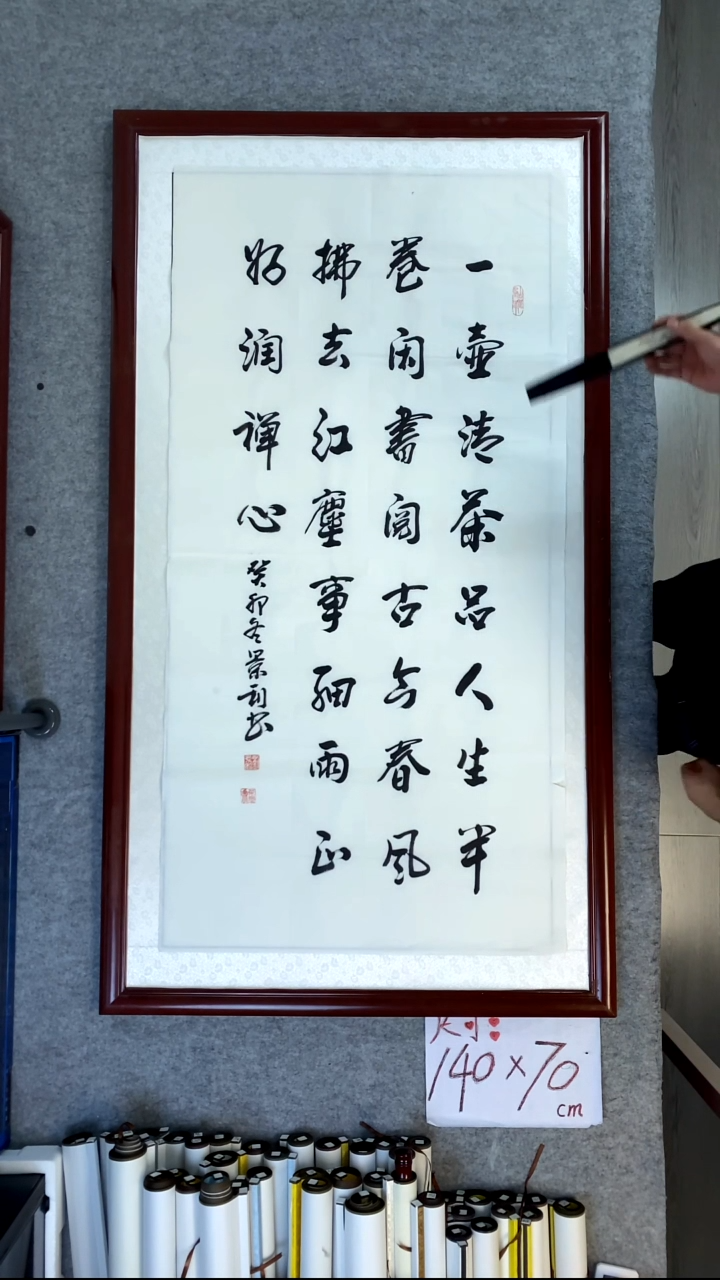 一壺清茶品人生半
卷闲書阅古今春风
拂去红塵事細雨正
好润禅心
癸卯冬景
尺寸:
140×70
cm